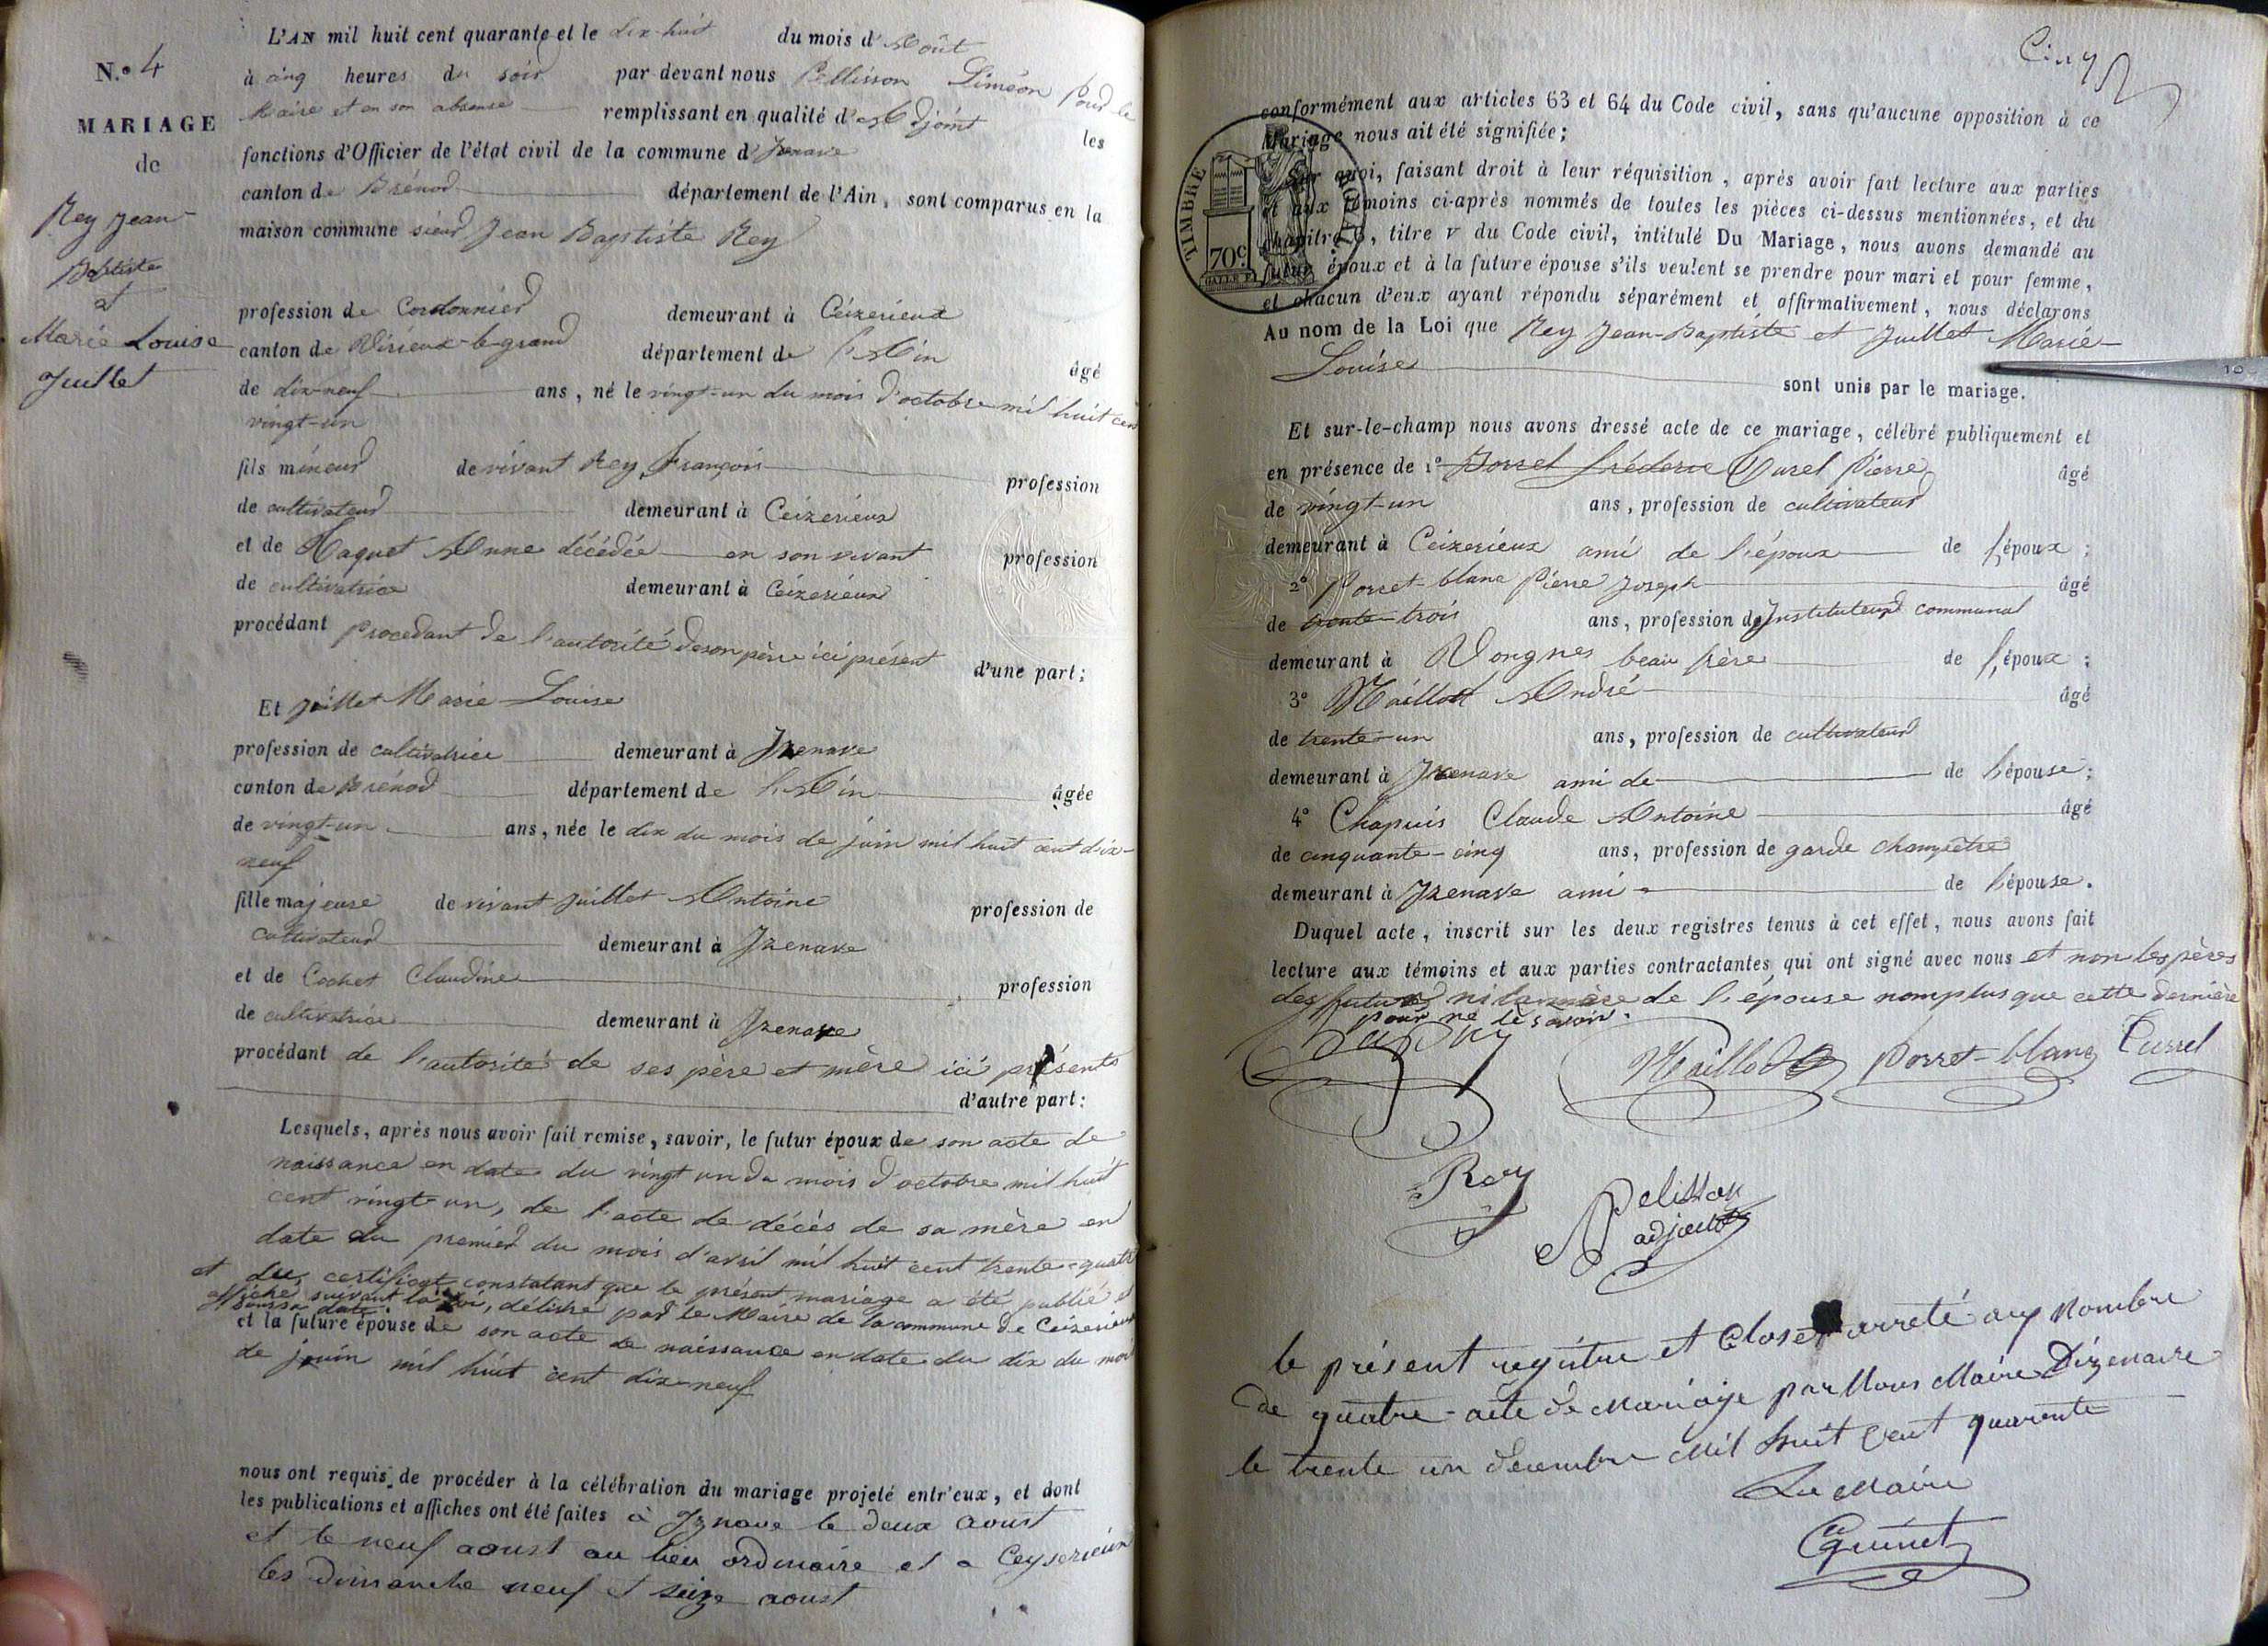 N.º 4
MARIAGE
de
Rey Jean-
Baptiste
et
Marie Louise
Juillet
L'AN mil huit cent quarante et le dix-huit du mois d'Août
à cinq heures du soir par devant nous Pellisson Siméon pour le
Maire et en son absence remplissant en qualité d'Adjoint les
fonctions d'Officier de l'état civil de la commune d'Izenave
canton de Brénod département de l'Ain, sont comparus en la
maison commune sieur Jean Baptiste Rey
profession de Cordonnier demeurant à Ceizerieux
canton de Virieux-le-grand département de l'Ain âgé
de dix-neuf ans, né le vingt-un du mois d'octobre mil huit cent
vingt-un
fils mineur de vivant Rey François profession
de cultivateur demeurant à Ceizerieux
et de Anne décédée en son vivant profession
de cultivatrice demeurant à Ceizerieux
procédant procedant de l'autorité de son père ici présent
d'une part;
Et Juillet Marie Louise
profession de cultivatrice demeurant à Izenave
canton de Brénod département de l'Ain âgée
de vingt-un ans, née le dix du mois de juin mil huit cent dix-
neuf
fille majeure de vivant Juillet Antoine profession de
cultivateur demeurant à Izenave
et de Cochet Claudine profession
de cultivatrice demeurant à Izenave
procédant de l'autorité de ses père et mère ici présents
d'autre part:
Lesquels, après nous avoir fait remise, savoir, le futur époux de son acte de
naissance en date du vingt un du mois d'octobre mil huit
cent vingt-un, de l'acte de décès de sa mère en
date du premier du mois d'avril mil huit cent trente-quatre
et du certificat constatant que le présent mariage a été publié et
affiché suivant la loi, délivré par le Maire de la commune de Ceizerieux
sous sa date.
et la future épouse de son acte de naissance en date du dix du mois
de juin mil huit cent dix-neuf
nous ont requis de procéder à la célébration du mariage projeté entr'eux, et dont
les publications et affiches ont été faites à Iznave le deux aoust
et le neuf aoust au lieu ordinaire et a Ceyserieux
les dimanche neuf et seize aoust
Cinq
conformément aux articles 63 et 64 du Code civil, sans qu'aucune opposition à ce
Mariage nous ait été signifiée;
TIMBRE ROYAL
70c.
Sur quoi, faisant droit à leur réquisition, après avoir fait lecture aux parties
et aux témoins ci-après nommés de toutes les pièces ci-dessus mentionnées, et du
chapitre 6, titre v du Code civil, intitulé Du Mariage, nous avons demandé au
futur époux et à la future épouse s'ils veulent se prendre pour mari et pour femme,
et chacun d'eux ayant répondu séparément et affirmativement, nous déclarons
Au nom de la Loi que Rey Jean-Baptiste et Juillet Marie-
Louise
sont unis par le mariage.
10
Et sur-le-champ nous avons dressé acte de ce mariage, célébré publiquement et
en présence de 1º Pierre âgé
de vingt-un ans, profession de cultivateur
demeurant à Ceizerieux ami de l'époux de l'époux;
2º Porret-blanc Pierre Joseph âgé
de trente-trois ans, profession de Instituteur communal
demeurant à Vongnes beau frère de l'époux;
3º Maillod André âgé
de trente-un ans, profession de cultivateur
demeurant à Izenave ami de de l'épouse;
4º Chapuis Claude Antoine âgé
de cinquante-cinq ans, profession de garde champêtre
demeurant à Izenave ami de l'épouse.
Duquel acte, inscrit sur les deux registres tenus à cet effet, nous avons fait
lecture aux témoins et aux parties contractantes qui ont signé avec nous et non les pères
des futurs ni la mère de l'épouse nomplus que cette dernière
pour ne le savoir.
Maillod Porret-blanc Cussel
Rey
Pelisson
adjoint
le présent registre et Clos et arreté au Nombre
de quatre acte de Mariage par Nous Maire Dizenave
le trente un decembre Mil huit Cent quarente
Le Maire
Guinet